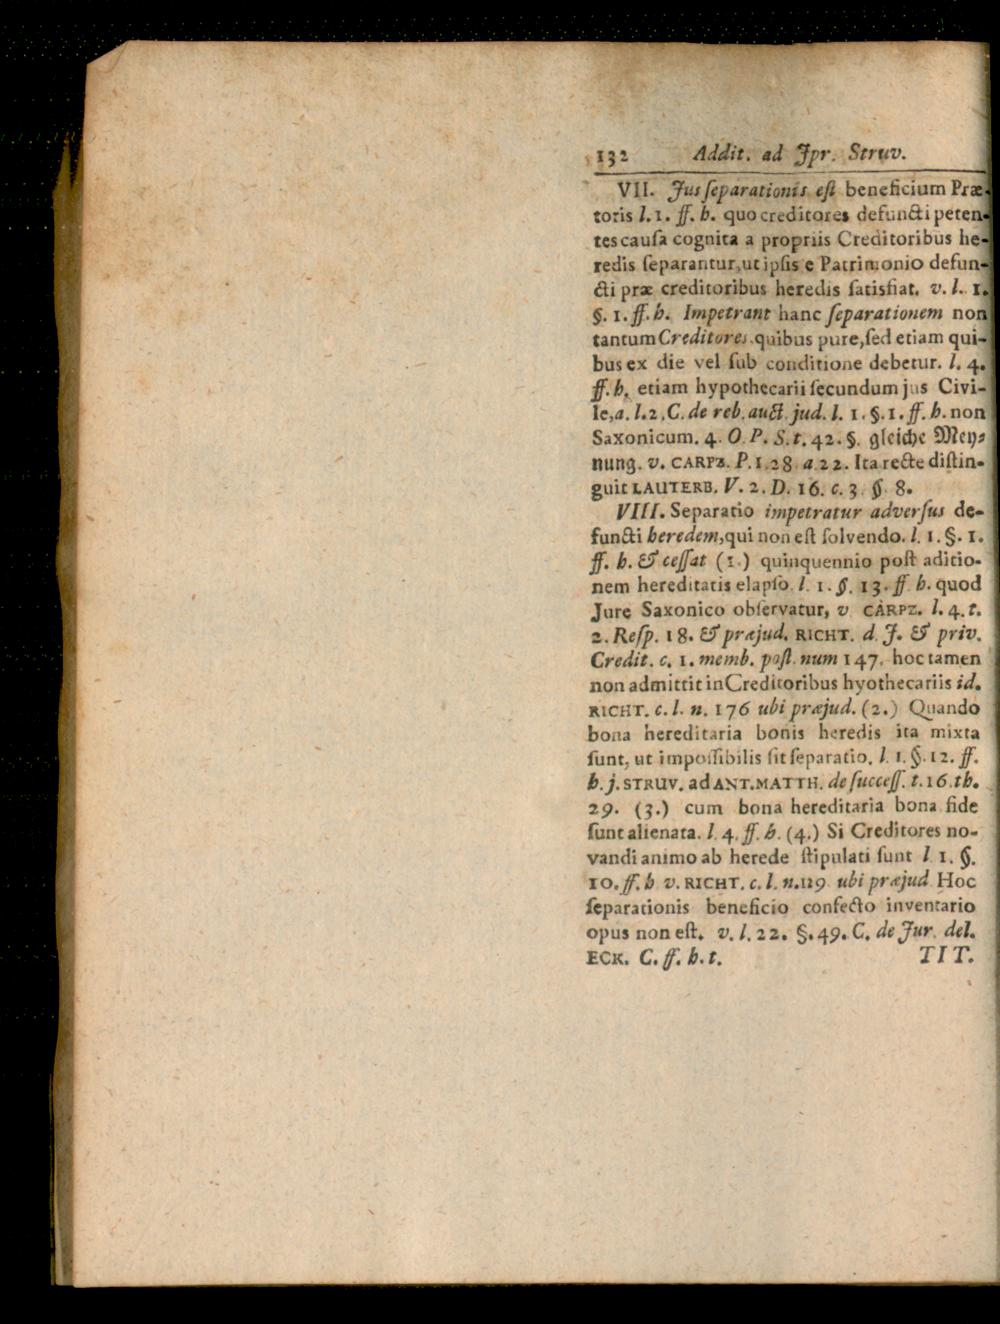 132 Addit. ad Jpr. Struv.
VII. Jus ſeparationis eſt beneficium Præ-
toris l. 1. ff. h. quo creditores defuncti peten-
tes cauſa cognita a propriis Creditoribus he-
redis ſeparantur, ut ipſis e Patrimonio defun-
cti præ creditoribus heredis ſatisfiat. v. l. 1.
§. 1. ff. h. Impetrant hanc ſeparationem non
tantum Creditores quibus pure, ſed etiam qui-
bus ex die vel ſub conditione debetur. l. 4.
ff. h. etiam hypothecarii ſecundum jus Civi-
le, a. l. 2. C. de reb. auct. jud. l. 1. §. 1. ff. h. non
Saxonicum. 4. O. P. S. t. 42. §. gleiche Mey-
nung. v. CARPZ. P. 1. 28. a 22. Ita recte diſtin-
guit LAUTERB. V. 2. D. 16. c. 3. §. 8.
VIII. Separatio impetratur adverſus de-
functi heredem, qui non eſt ſolvendo. l. 1. §. 1.
ff. h. & ceſſat (1.) quinquennio poſt aditio-
nem hereditatis elapſo. l. 1. §. 13. ff h. quod
Jure Saxonico obſervatur, v CARPZ. l. 4. t.
2. Reſp. 18. & præjud. RICHT. d. J. & priv.
Credit. c. 1. memb. poſt. num 147. hoc tamen
non admittit in Creditoribus hyothecariis id.
RICHT. c. l. n. 176 ubi præjud. (2.) Quando
bona hereditaria bonis heredis ita mixta
ſunt, ut impoſſibilis ſit ſeparatio. l. 1. §. 12. ff.
h. j. STRUV. ad ANT. MATTH. de ſucceſſ. t. 16. th.
29. (3.) cum bona hereditaria bona fide
ſunt alienata. l. 4. ff. h. (4.) Si Creditores no-
vandi animo ab herede ſtipulati ſunt l 1. §.
10. ff. h v. RICHT. c. l. n. 119 ubi præjud Hoc
ſeparationis beneficio confecto inventario
opus non eſt. v. l. 22. §. 49. C. de Jur. del.
ECK. C. ff. h. t. TIT.